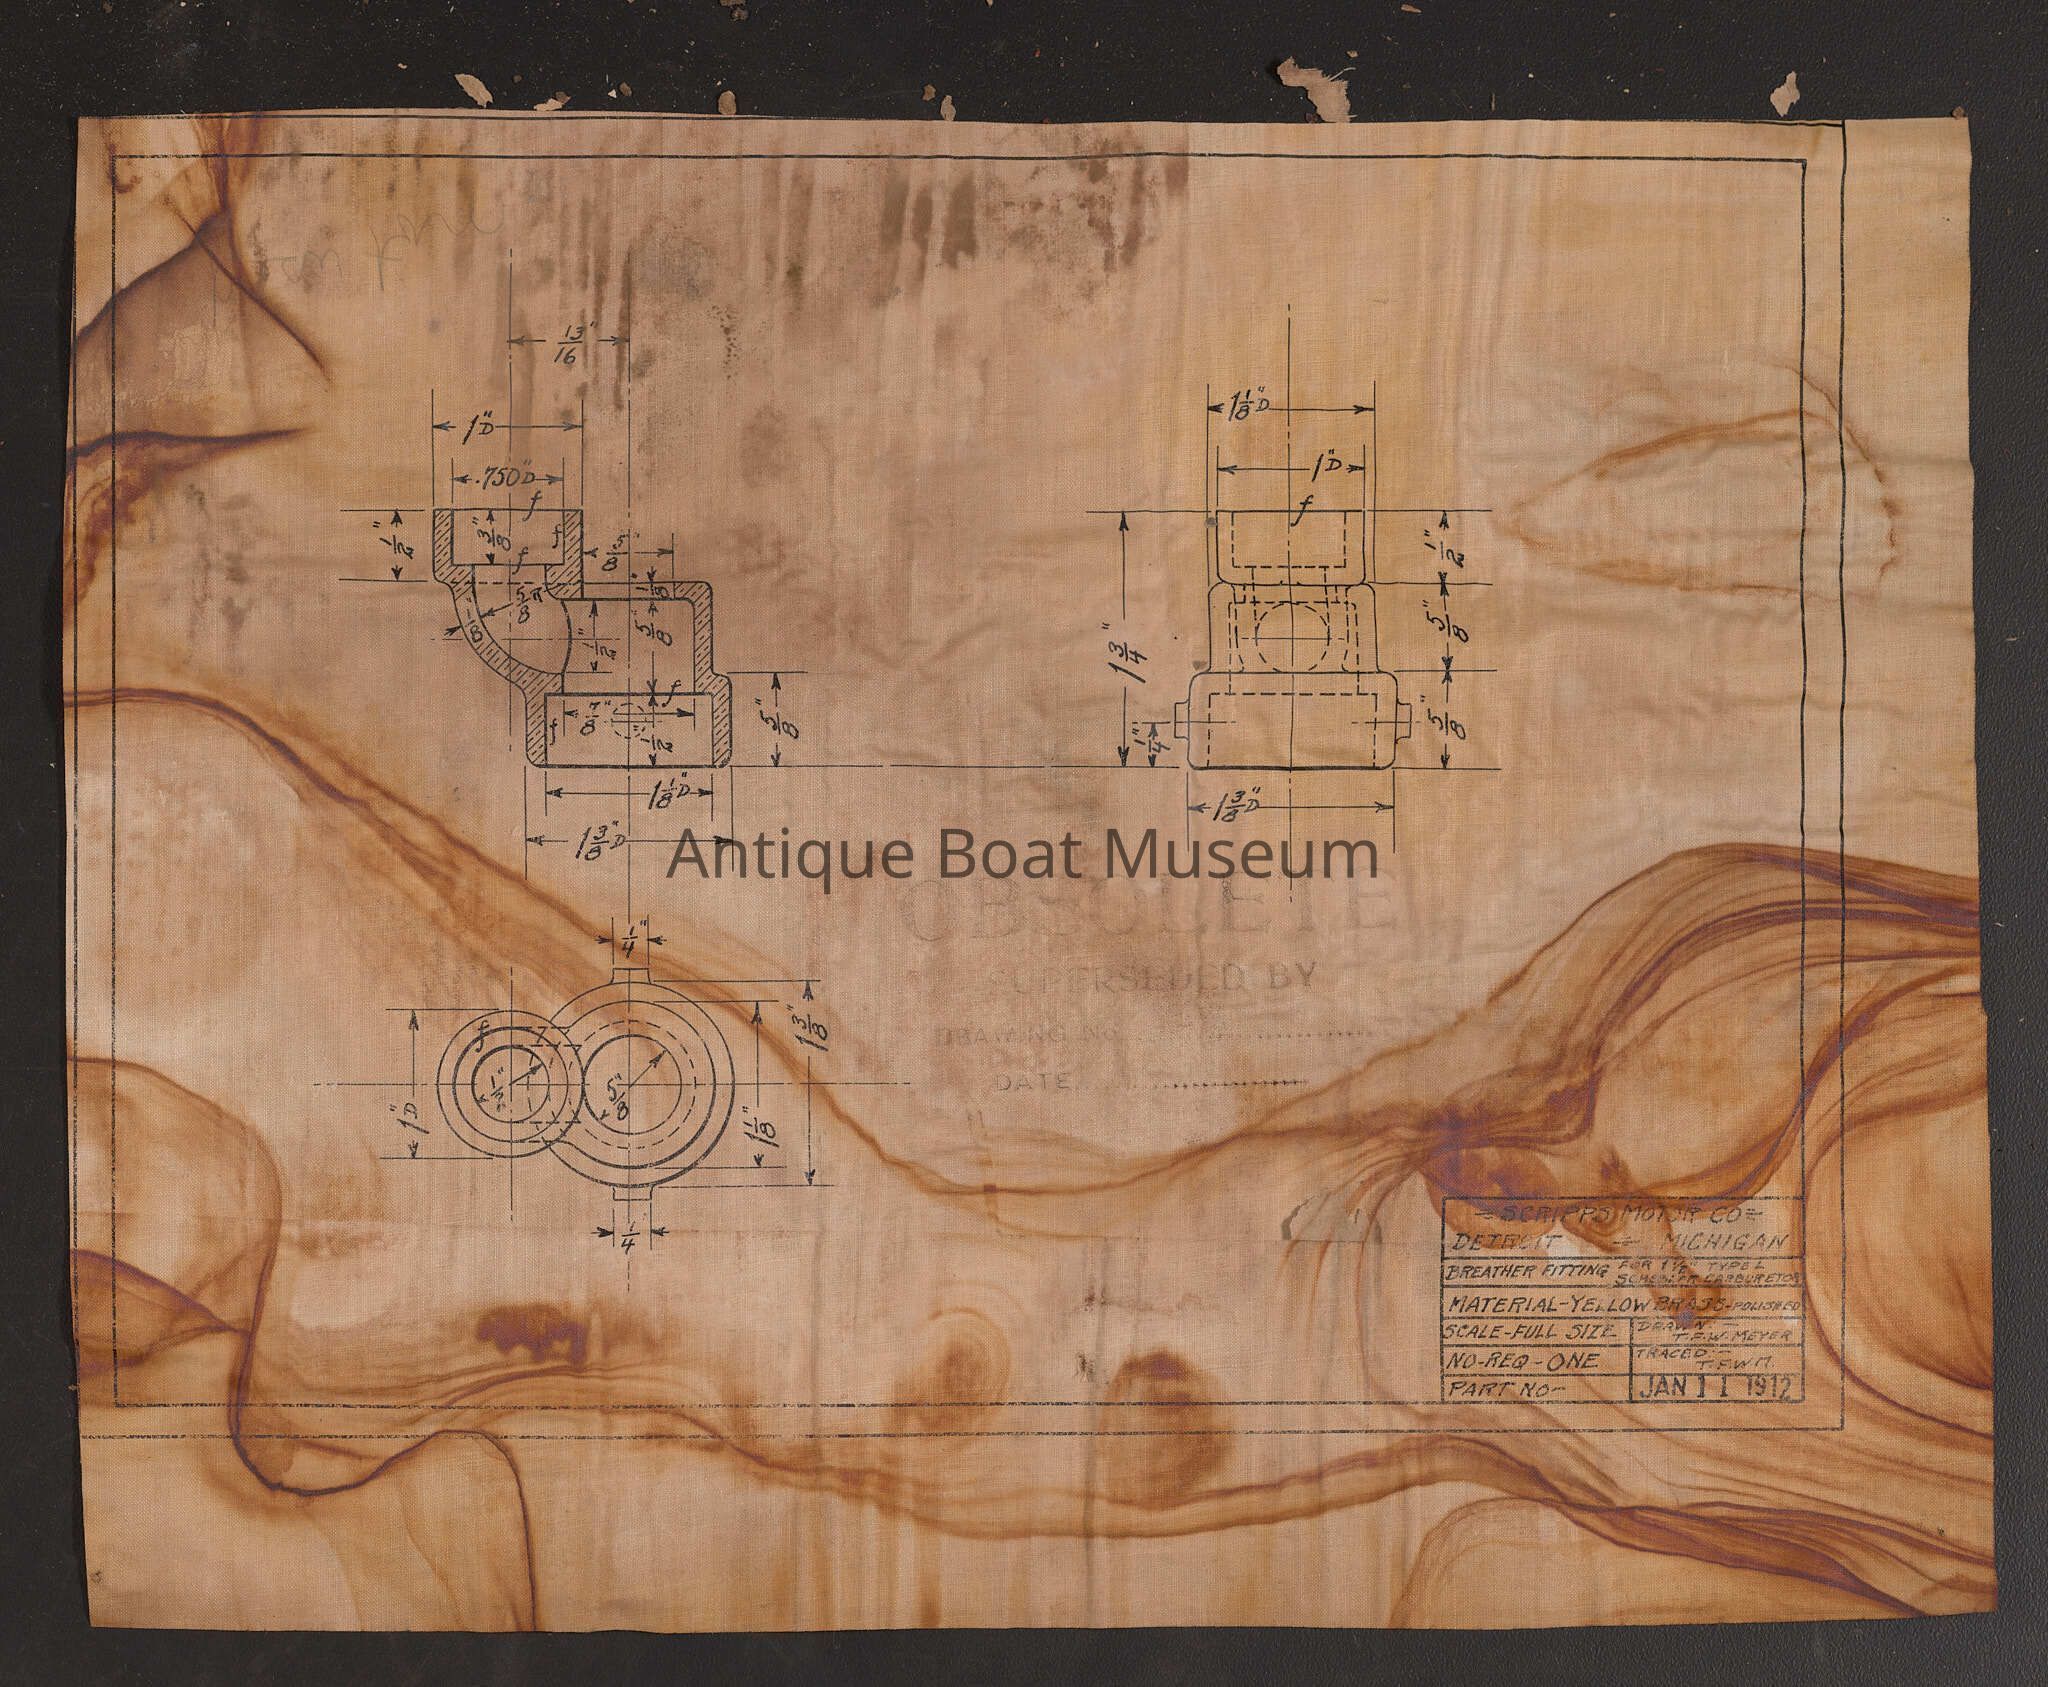 13"
16
1"D
.750"D
f
1/2"
3/8"
f
f
5/8"
1/8"
5/8"R
1/8
1/2"
5/8"
f
f
7/8"
1/2"
5/8"
1 1/8"D
1 3/8"D
1 1/8"D
1"D
f
1 3/4"
1/2"
5/8"
5/8"
1/4"
1 3/8"D
Antique Boat Museum
OBSOLETE
SUPERSEDED BY
DRAWING NO
DATE
1/4"
f
1"D
1/2"
5/8"
1 1/8"
1 3/8"
1/4
=SCRIPPS MOTOR CO=
DETROIT = MICHIGAN
BREATHER FITTING FOR 1 1/2" TYPE L
SCHEBLER CARBURETOR
MATERIAL-YELLOW BRASS-POLISHED
SCALE-FULL SIZE
DRAWN:-
T.F.W. MEYER
NO-REQ-ONE
TRACED:-
T.F.W.M.
PART NO-
JAN 11 1912